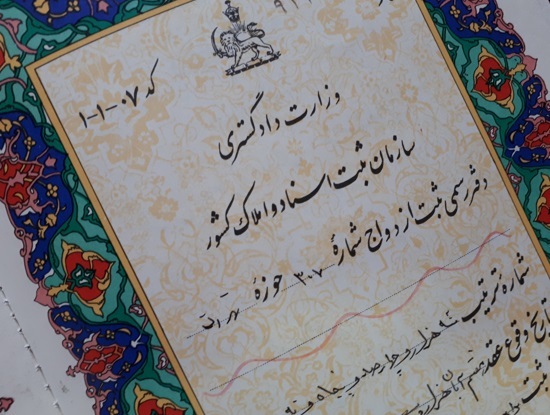 کد ۰۷-۱-۱
وزارت دادگستری
سازمان ثبت اسناد و املاک کشور
دفتر رسمی ثبت ازدواج شمارهٔ ۳۰۷ حوزهٔ تهران
شماره ترتیب نه هزار و چهارصد و پنجاه و نه
تاریخ وقوع عقد
ثبت